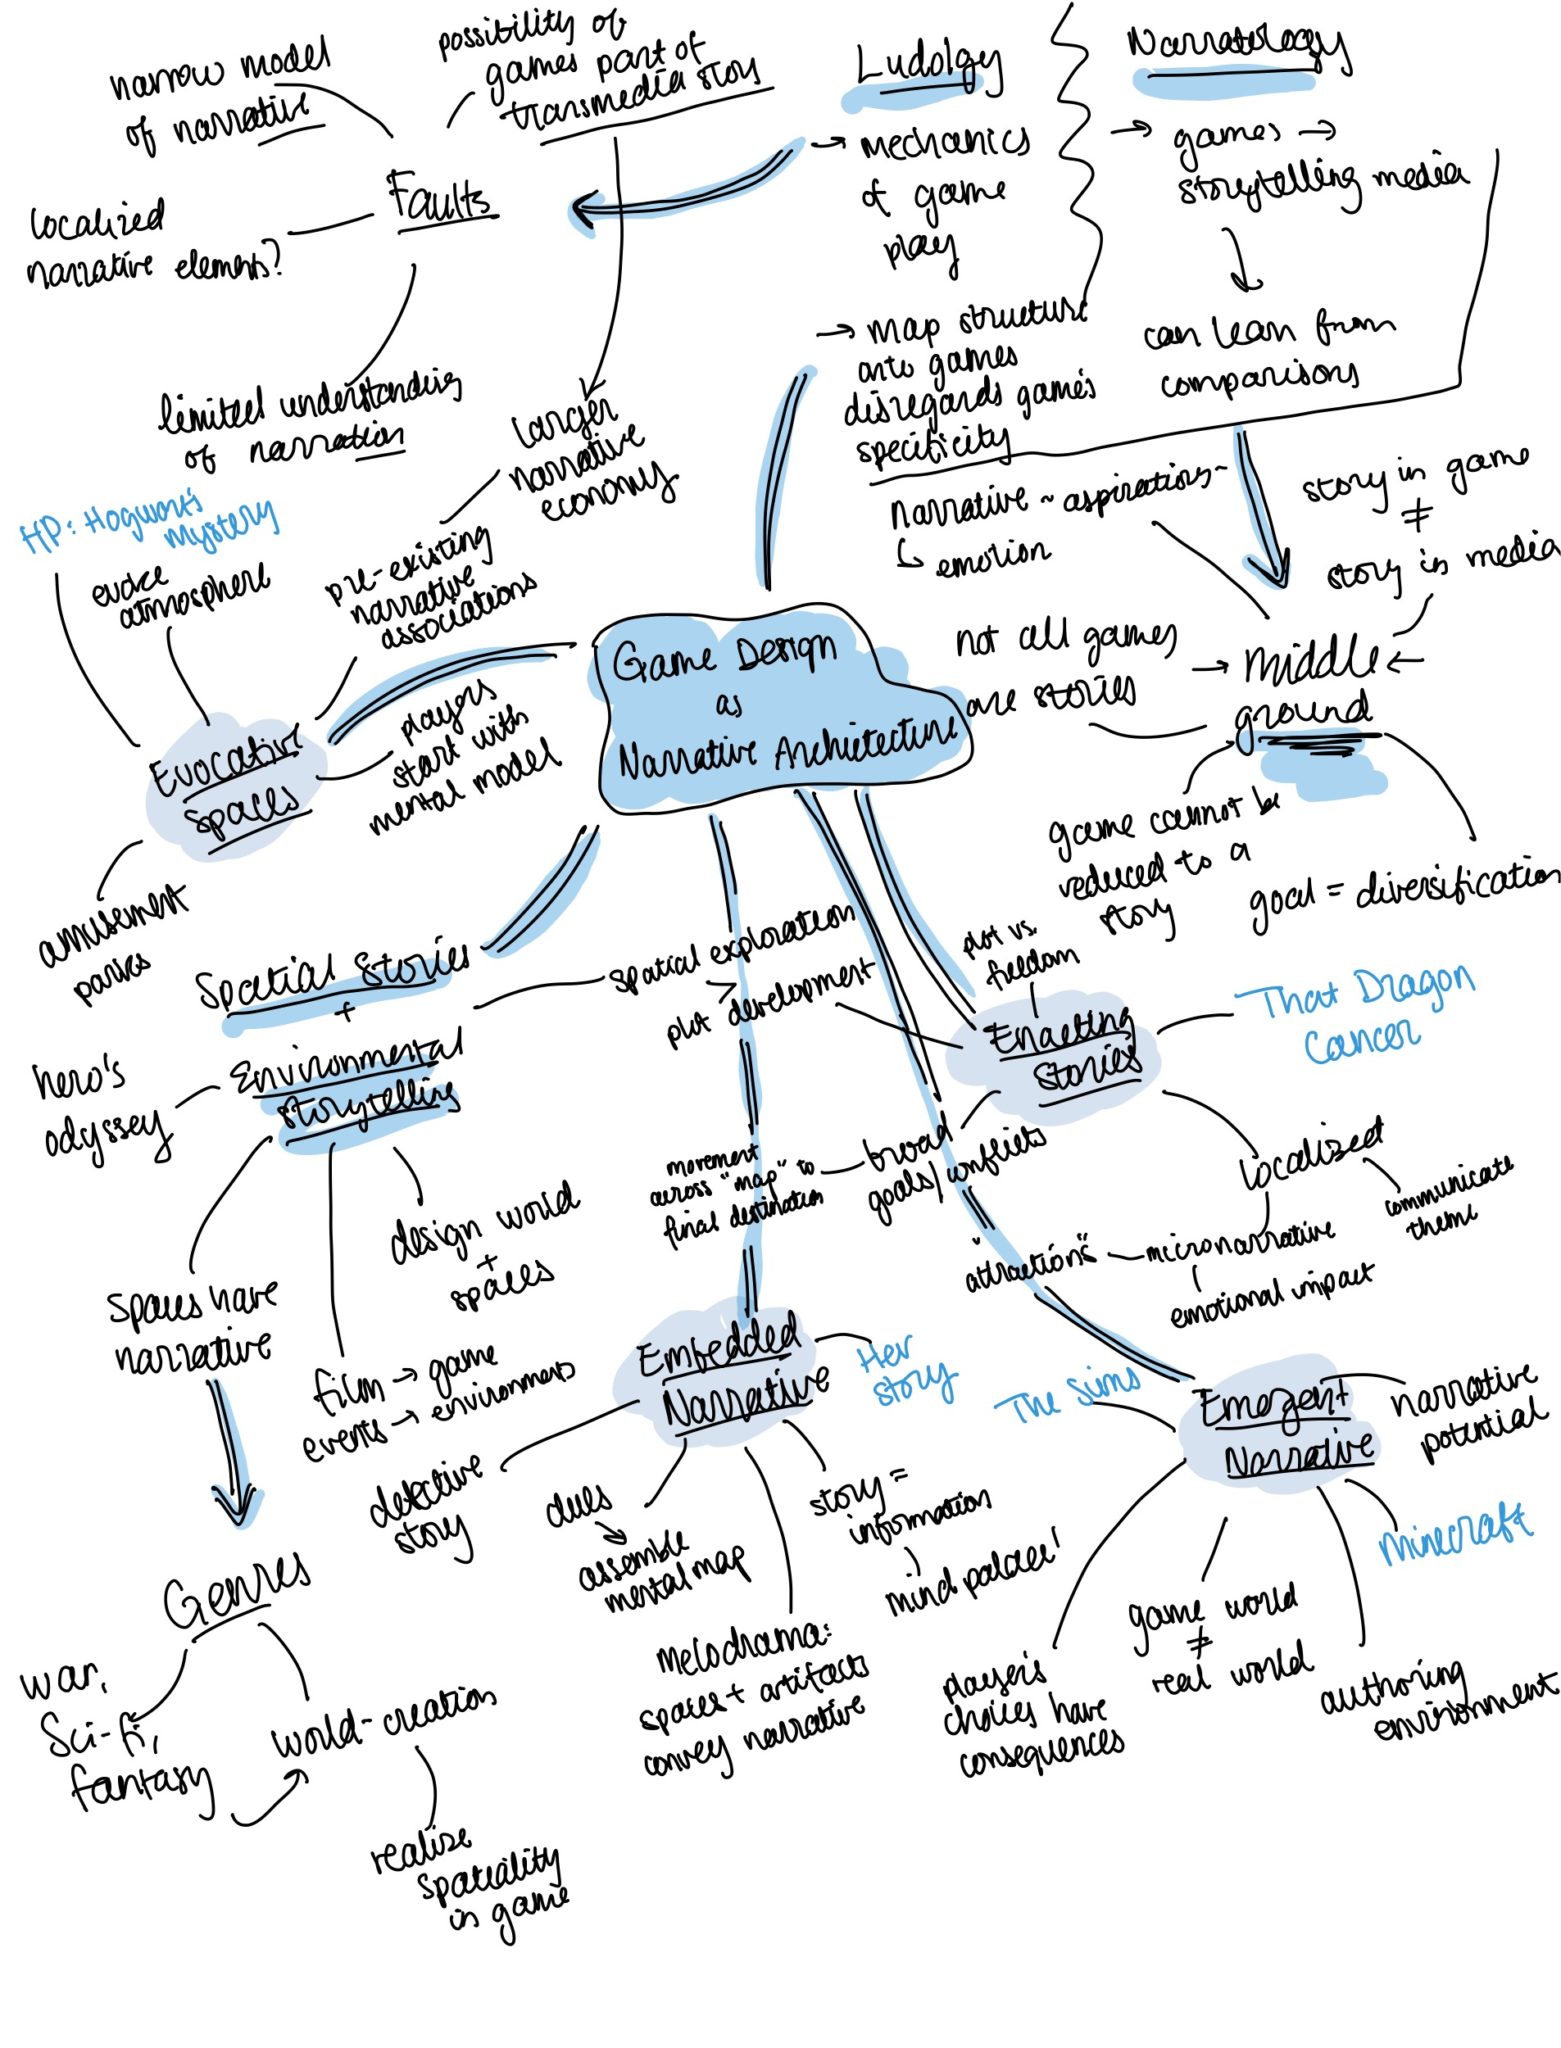 narrow model
of narrative
possibility of
games part of
transmedia story
Faults
localized
narrative elements?
limited understanding
of narration
larger
narrative
economy
Ludolgy
→ mechanics
of game
play
→ map structure
onto games
disregards game's
specificity
Narratology
→ games →
storytelling media
can learn from
comparisons
narrative ~ aspirations ~
↳ emotion
story in game
≠
story in media
not all games
are stories
→ middle ←
ground
game cannot be
reduced to a
story
goal = diversification
Game Design
as
Narrative Architecture
HP: Hogwarts
Mystery
evoke
atmosphere
pre-existing
narrative
associations
players
start with
mental model
Evocative
Spaces
amusement
parks
Spatial Stories
+
Environmental
storytelling
hero's
odyssey
design world
+
spaces
spaces have
narrative
film → game
events → environments
Genres
war,
Sci-fi,
fantasy
world-creation
realize
spatiality
in game
spatial exploration
>
plot development
plot vs.
freedom
Enacting
Stories
That Dragon
Cancer
broad
goals/conflicts
movement
across "map" to
final destination
localized
communicate
theme
"attractions"
micronarrative
emotional impact
Embedded
Narrative
Her
story
detective
story
clues
assemble
mental map
story =
information
mind palace!
melodrama:
spaces + artifacts
convey narrative
The Sims
Emergent
Narrative
narrative
potential
Minecraft
player's
choices have
consequences
game world
≠
real world
authoring
environment